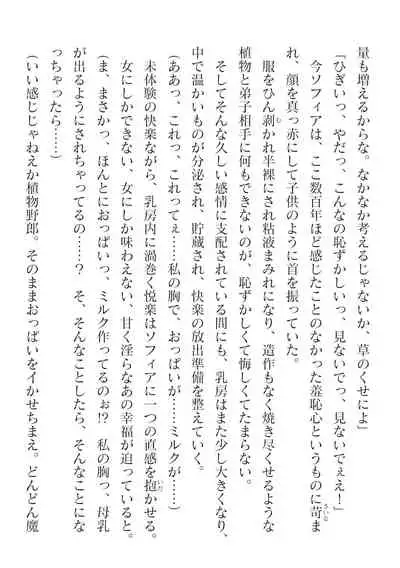 量も増えるからな。なかなか考えるじゃないか、草のくせによ」
「ひぎいっ、やだっ、こんなの恥ずかしいっ、見ないでっ、見ないでぇえ！」
今ソフィアは、ここ数百年ほど感じたことのなかった羞恥心というものに苛ま
れ、顔を真っ赤にして子供のように首を振っていた。
服をひん剥かれ半裸にされ粘液まみれになり、造作もなく焼き尽くせるような
植物と弟子相手に何もできないのが、恥ずかしくて悔しくてたまらない。
そしてそんな久しい感情に支配されている間にも、乳房はまた少し大きくなり、
中で温かいものが分泌され、貯蔵され、快楽の放出準備を整えていく。
(ああっ、これっ、これってぇ……私の胸で、おっぱいが……ミルクが……)
未体験の快楽ながら、乳房内に渦巻く悦楽はソフィアに一つの直感を抱かせる。
女にしかできない、女にしか味わえない、甘く淫らなあの幸福が迫っていると。
(ま、まさかっ、ほんとにおっぱいっ、ミルク作ってるのぉ!? 私の胸っ、母乳
が出るようにされちゃってるの……？ そ、そんなことしたら、そんなことにな
っちゃったら……)
(いい感じじゃねえか植物野郎。そのままおっぱいをイかせちまえ。どんどん魔